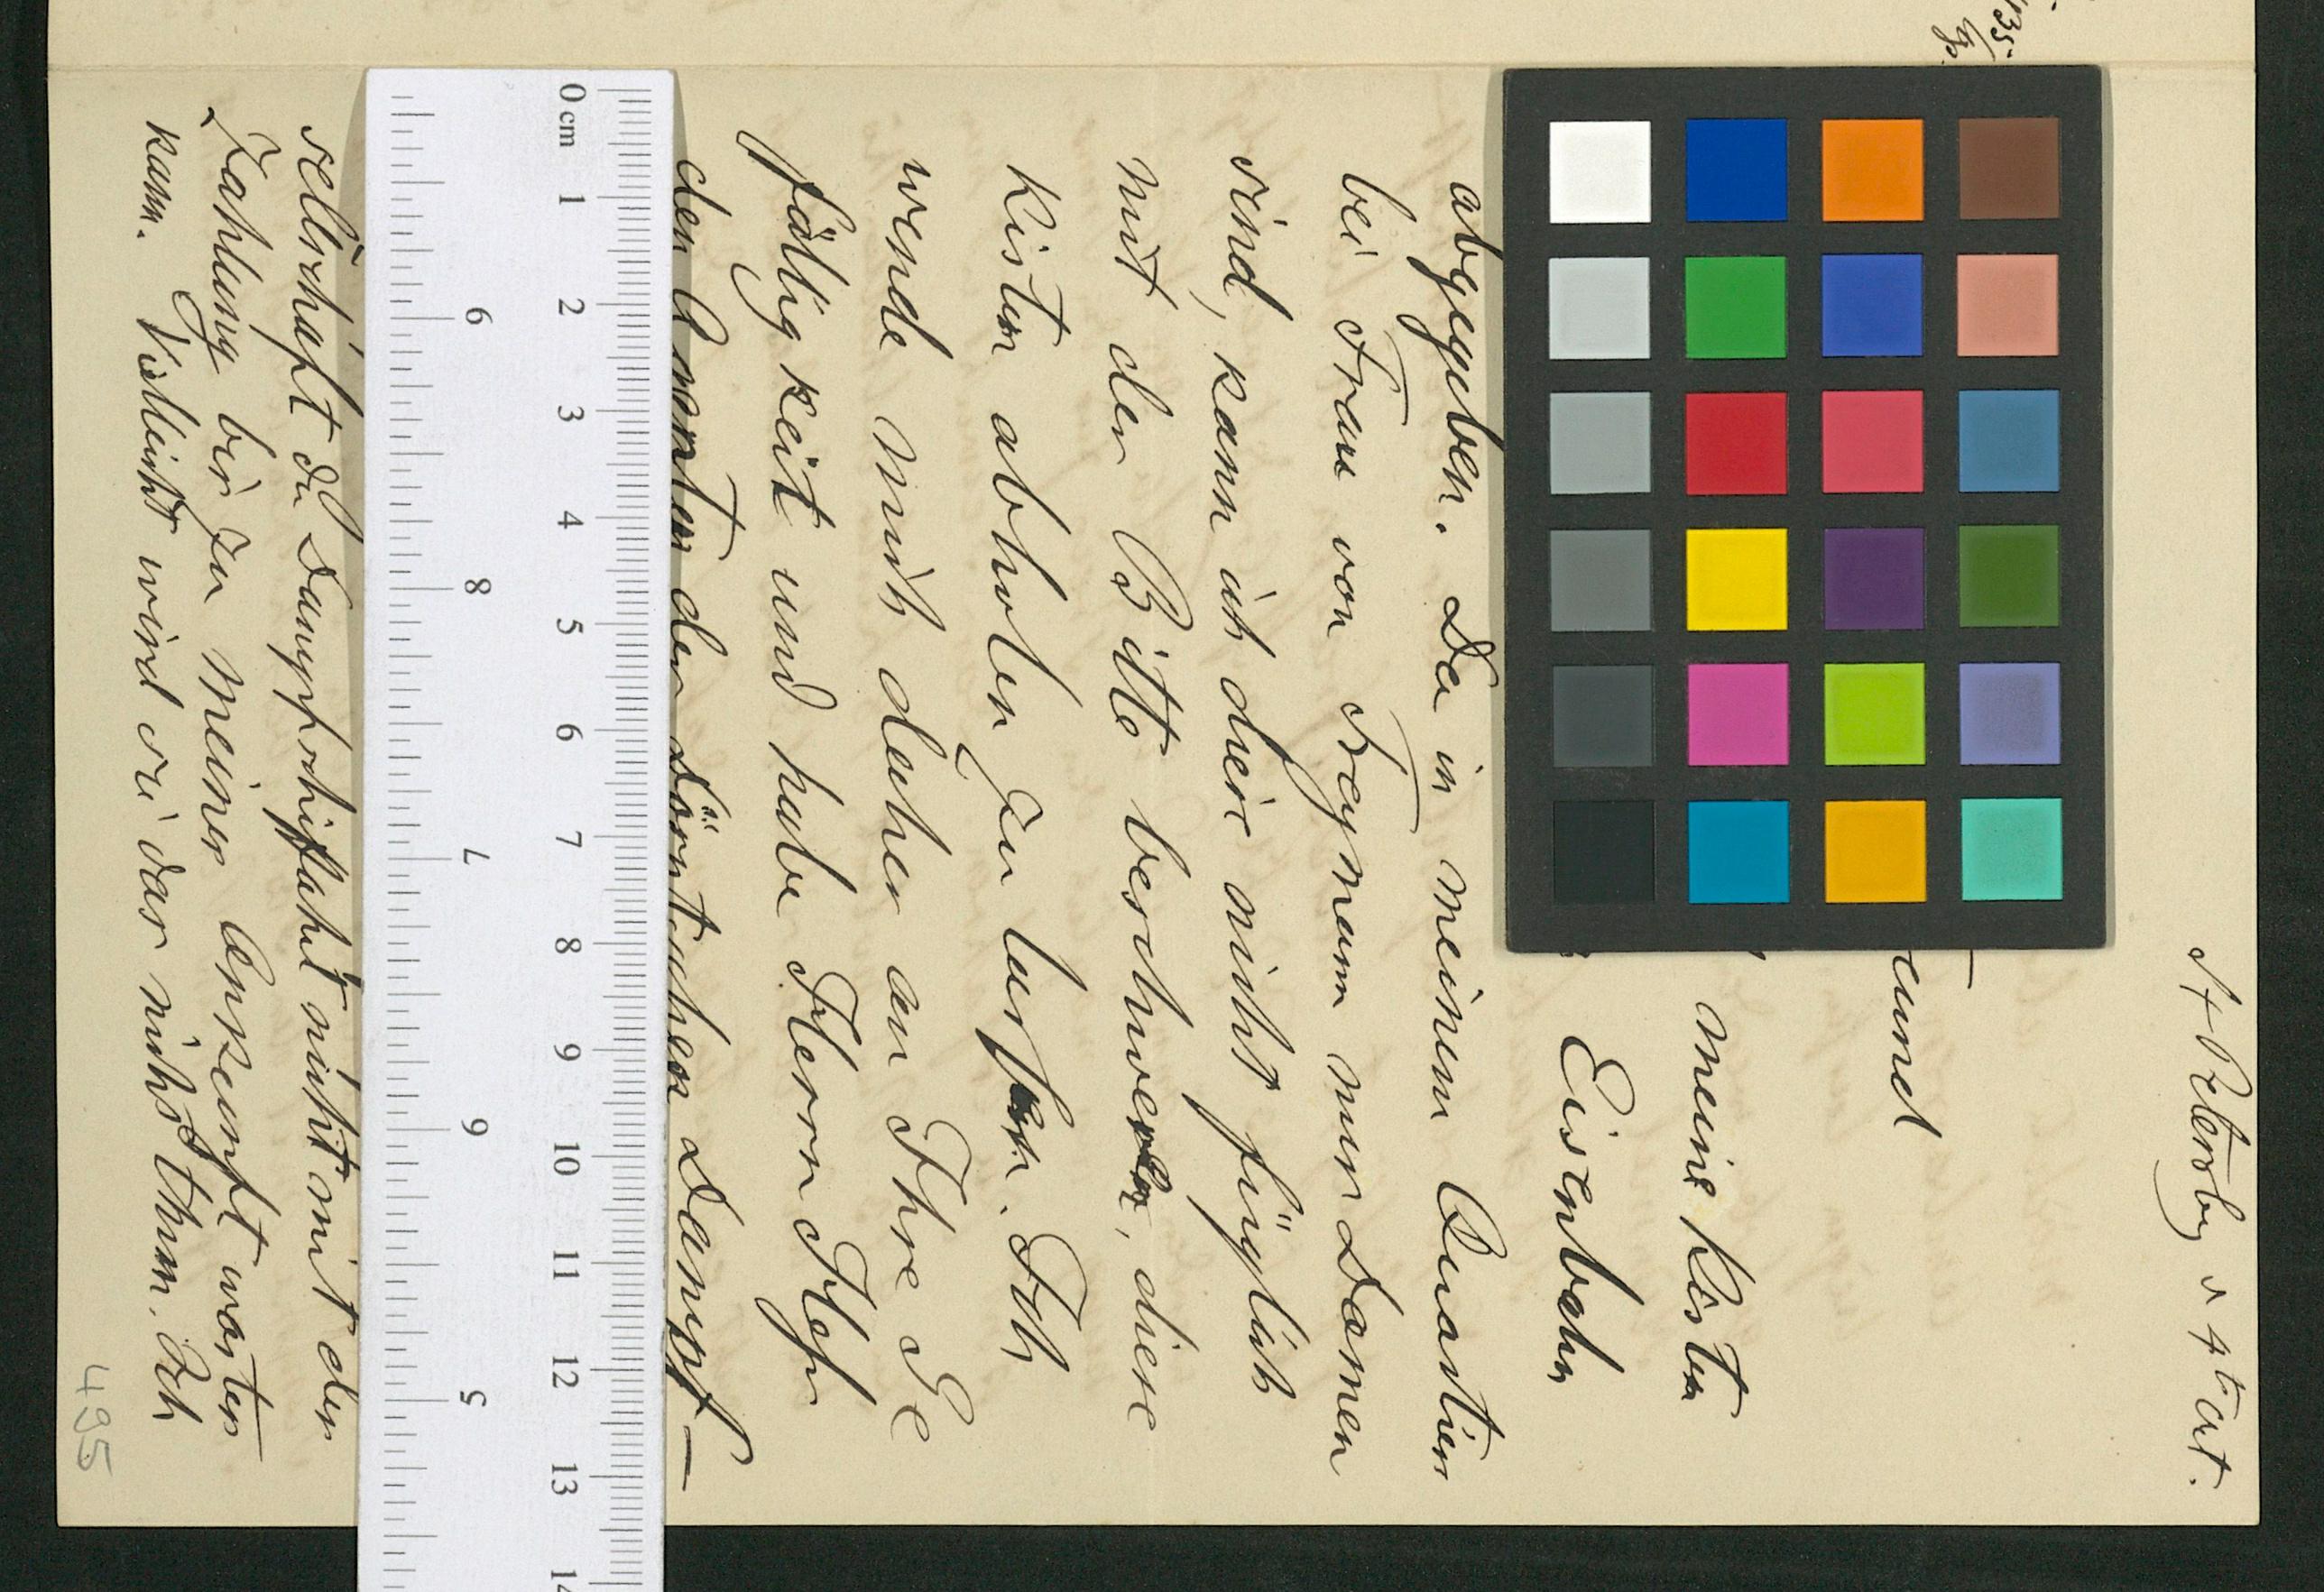 St Petersbg d 4t Oct.
eund
meine Kisten
Eisenbahn
abgegeben. Da in meinem Quartier
bei Frau von Tragmann nur Damen
sind, kann ich diese nicht füglich
mit der Bitte beschweren, diese
Kisten abholen zu lassen. Ich
wende mich daher an Ihre Ge
fälligkeit und habe Herrn Hess
den Agenten der Dörptschen Dampf-
sellschaft die Dampfschiffahrt nicht mit der
Zahlung bis zu meiner Ankunft warten
kann. Vielleicht wird sie das nicht thun. Ich
435
495
0cm 1 2 3 4 5 6 7 8 9 10 11 12 13 14